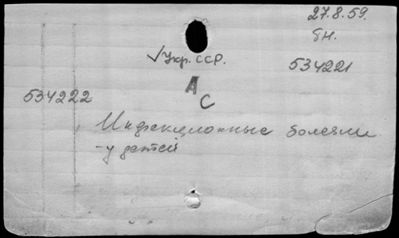 27.8.59.
БН.
✓Укр. ССР.
534221
А
С
534222
Инфекционные болезни
- у детей